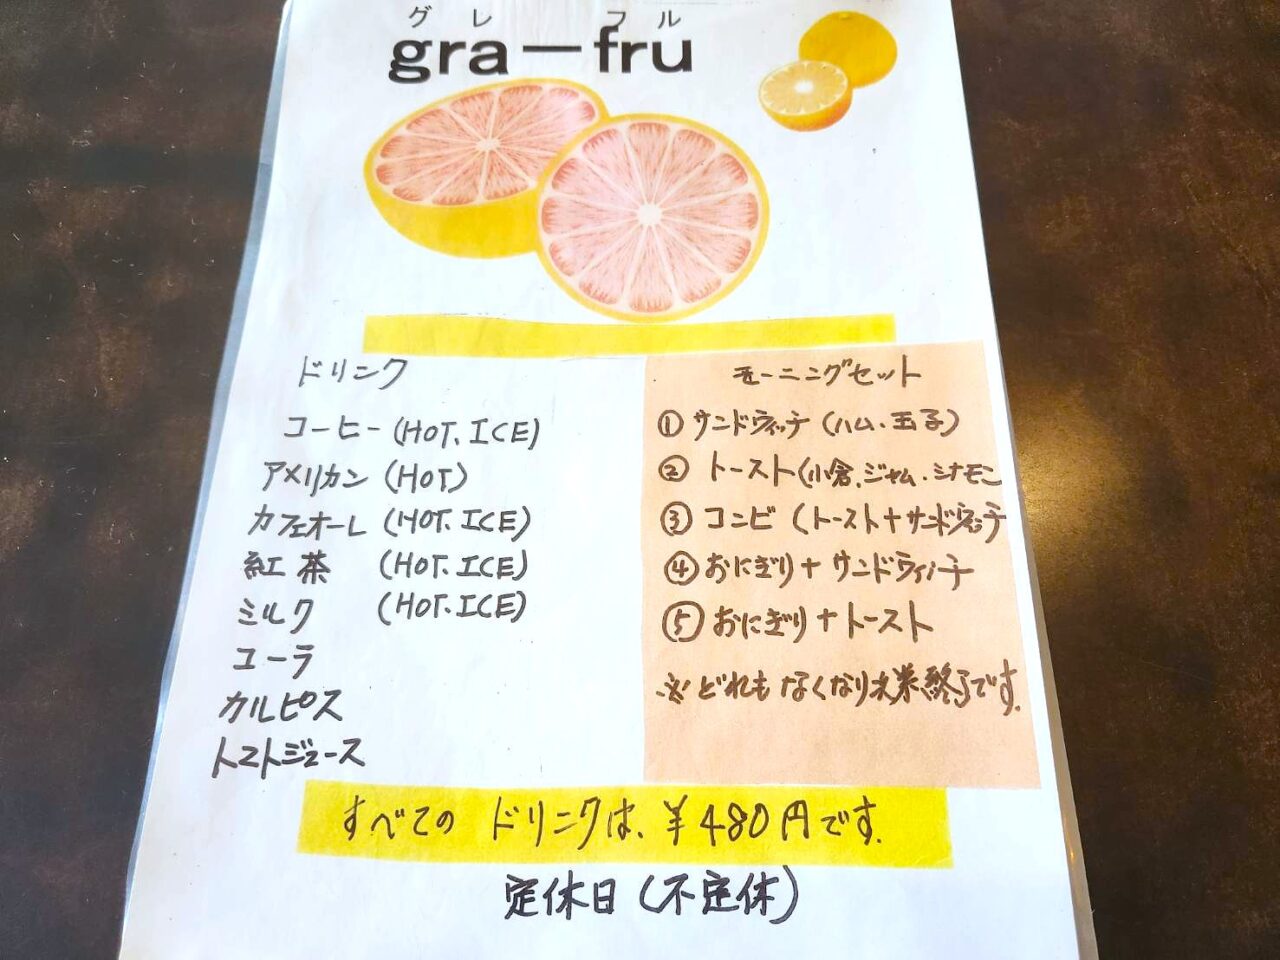 グレ フル
gra－fru
ドリンク
コーヒー (HOT. ICE)
アメリカン (HOT)
カフェオーレ (HOT. ICE)
紅茶 (HOT. ICE)
ミルク (HOT. ICE)
コーラ
カルピス
トマトジュース
モーニングセット
① サンドウィッチ (ハム・玉子)
② トースト(小倉.ジャム・シナモン
③ コンビ (トースト+サンドウィッチ
④ おにぎり+サンドウィッチ
⑤ おにぎり+トースト
※どれもなくなり次第終了です.
すべてのドリンクは、¥480円です.
定休日(不定休)